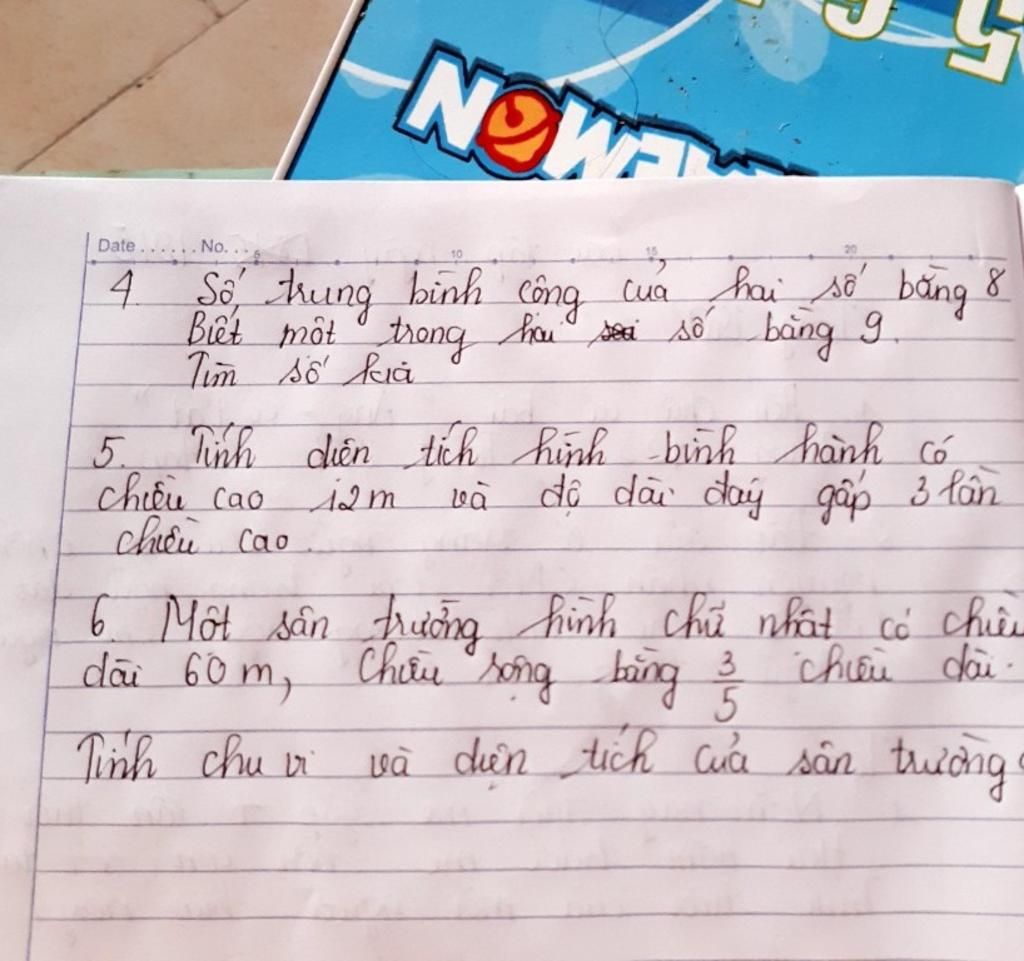 NOWEM
Date...... No...
5 10 15 20
4. Số trung bình cộng của hai số bằng 8
Biết một trong hai số bằng 9.
Tìm số kia
5. Tính diện tích hình bình hành có
chiều cao 12m và độ dài đáy gấp 3 lần
chiều cao.
6. Một sân trường hình chữ nhật có chiều
dài 60m, chiều rộng bằng 3/5 chiều dài.
Tính chu vi và diện tích của sân trường